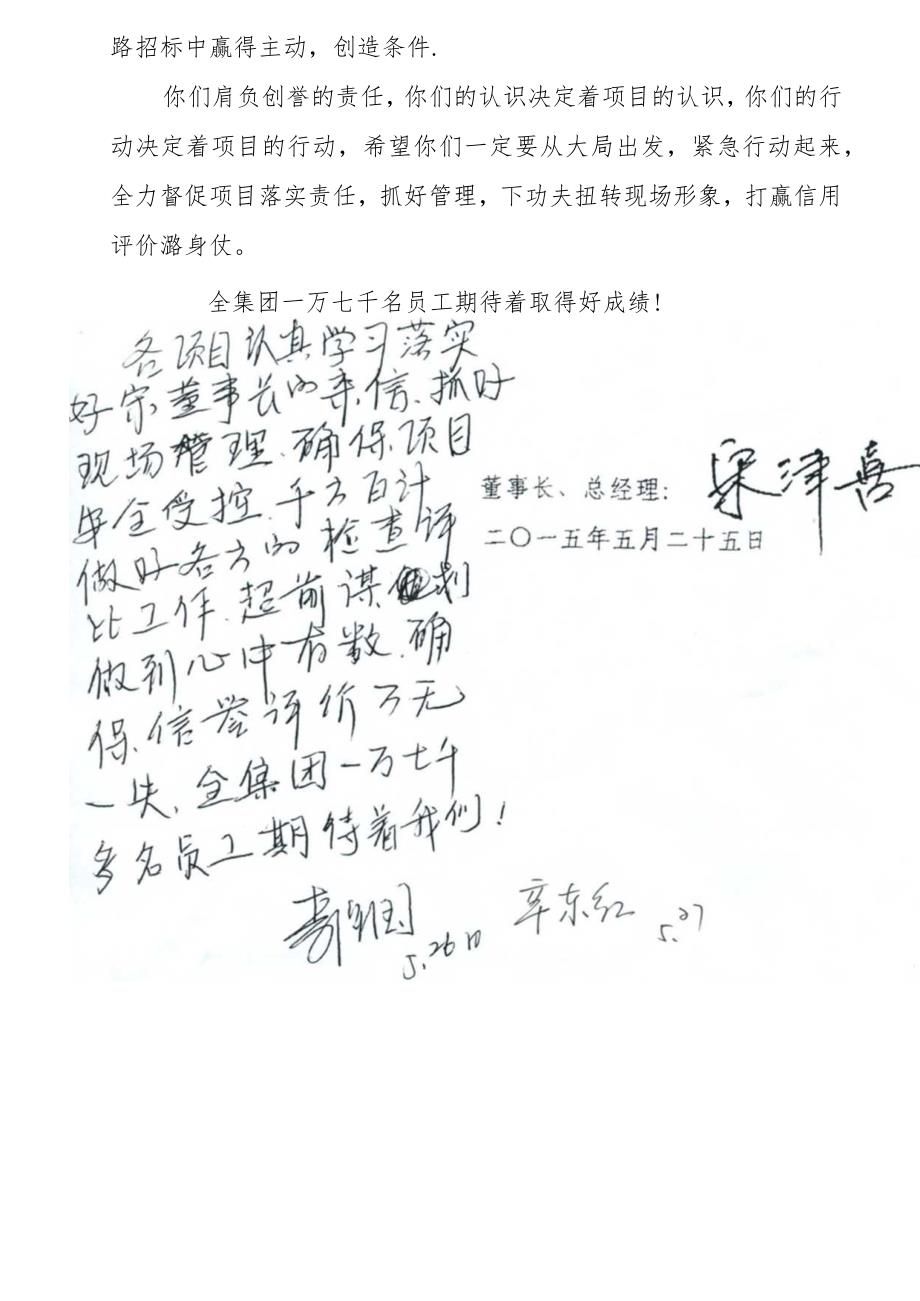 路招标中赢得主动，创造条件.
你们肩负创誉的责任，你们的认识决定着项目的认识，你们的行
动决定着项目的行动，希望你们一定要从大局出发，紧急行动起来，
全力督促项目落实责任，抓好管理，下功夫扭转现场形象，打赢信用
评价潞身仗。
全集团一万七千名员工期待着取得好成绩!
各项目认真学习落实
好宗董事长的来信、抓好
现场管理、确保项目
安全受控、千方百计
做好各方的检查评
比工作、超前谋划
做到心中有数、确
保信誉评价万无
一失、全集团一万七千
多名员工期待着我们！
董事长、总经理：
津喜
二〇一五年五月二十五日
5.26日
辛东红 5.27